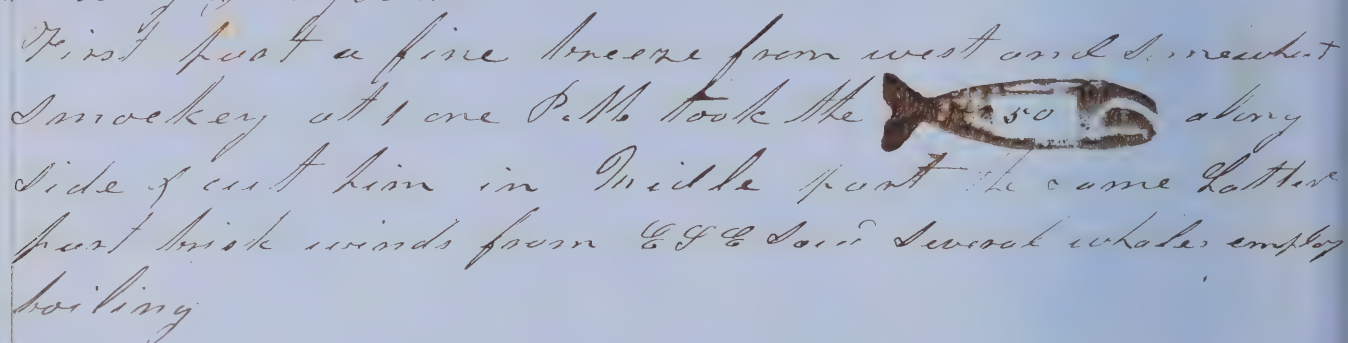 First part a fine breeze from west and somewhat
smockey at 1 one P.M. took the 50 along
side & cut him in Midle part the same Latter
part brisk winds from ESE saw several whales employ
boiling